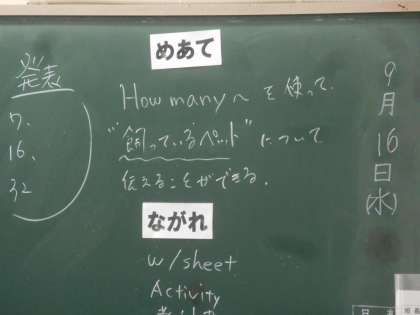 めあて
How many～を使って、
"飼っているペット"について
伝えることができる。
ながれ
w/sheet
Activity
発表
7、
16、
32
9月16日(水)